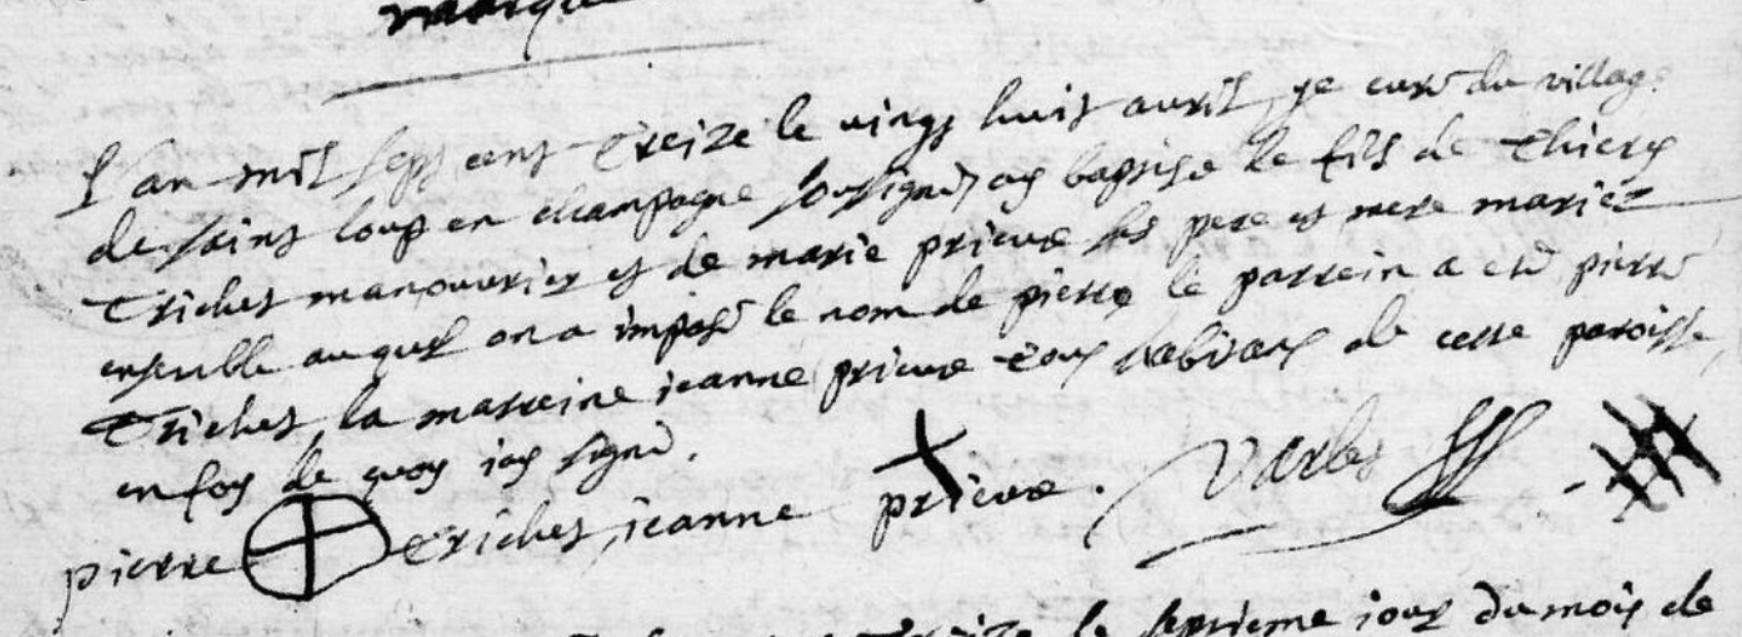 marque
L'an mil sept cent treize le vingt huit avril, je curé du village
de saint loup en champagne soussigné, ay baptisé le fils de thiery
Trichet manouvrier et de marie prieure ses pere et mere mariez
ensemble auquel on a imposé le nom de pierre le parrein a esté pierre
Trichet, la marreine jeanne prieure tous habitans de cette paroisse,
en foy de quoy jay signé.
pierre trichet, jeanne prieure.
du mois de